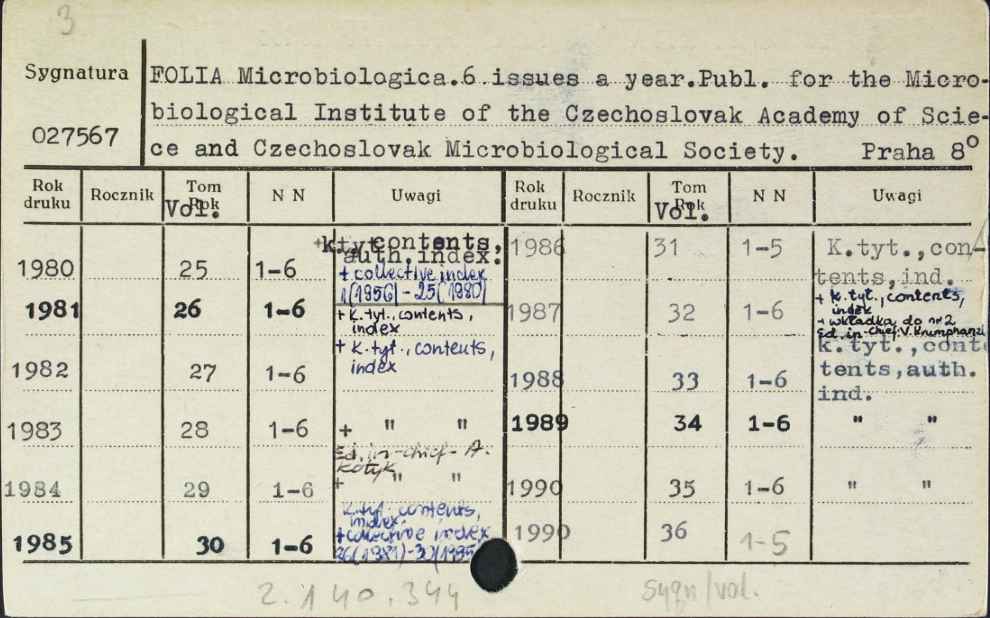 3
Sygnatura
027567
FOLIA Microbiologica.6 issues a year.Publ. for the Micro-
biological Institute of the Czechoslovak Academy of Scie-
ce and Czechoslovak Microbiological Society. Praha 8°
Rok druku Rocznik Tom Rok Vol. N N Uwagi Rok druku Rocznik Tom Rok Vol. N N Uwagi
1980 25 1-6 +k.tyt. contents, auth.index.
+ collective index
1(1956) - 25(1980)
1981 26 1-6 + k.tyt., contents,
index
1982 27 1-6 + k.tyt., contents,
index
1983 28 1-6 + " "
Ed. in-chief - A.
Kotyk
1984 29 1-6 + " "
1985 30 1-6 k.tyt. contents,
index.
+collective index
26(1981)-30(1985)
1986 31 1-5 K.tyt.,con-
tents,ind.
1987 32 1-6 + k.tyt., contents,
index
+ wkładka do nr 2
Ed. in-chief: V. Krumphanzl
1988 33 1-6 k.tyt.,cont
tents,auth.
ind.
1989 34 1-6 " "
1990 35 1-6 " "
1990 36 1-5
2.140.344
sygn/vol.